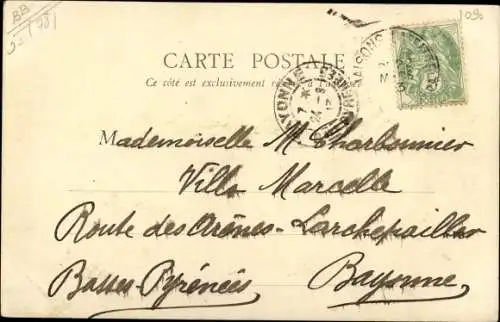 BB
1090
CARTE POSTALE
Ce côté est exclusivement
Mademoiselle M. Charbonnier
Villa Marcelle
Route des Arènes - Larchepailler
Basses-Pyrénées Bayonne